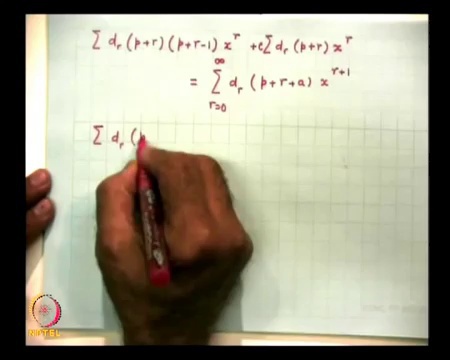 Σ d_r (p+r) (p+r-1) x^r + c Σ d_r (p+r) x^r
= Σ_{r=0}^{∞} d_r (p+r+a) x^{r+1}
Σ d_r (p
NPTEL